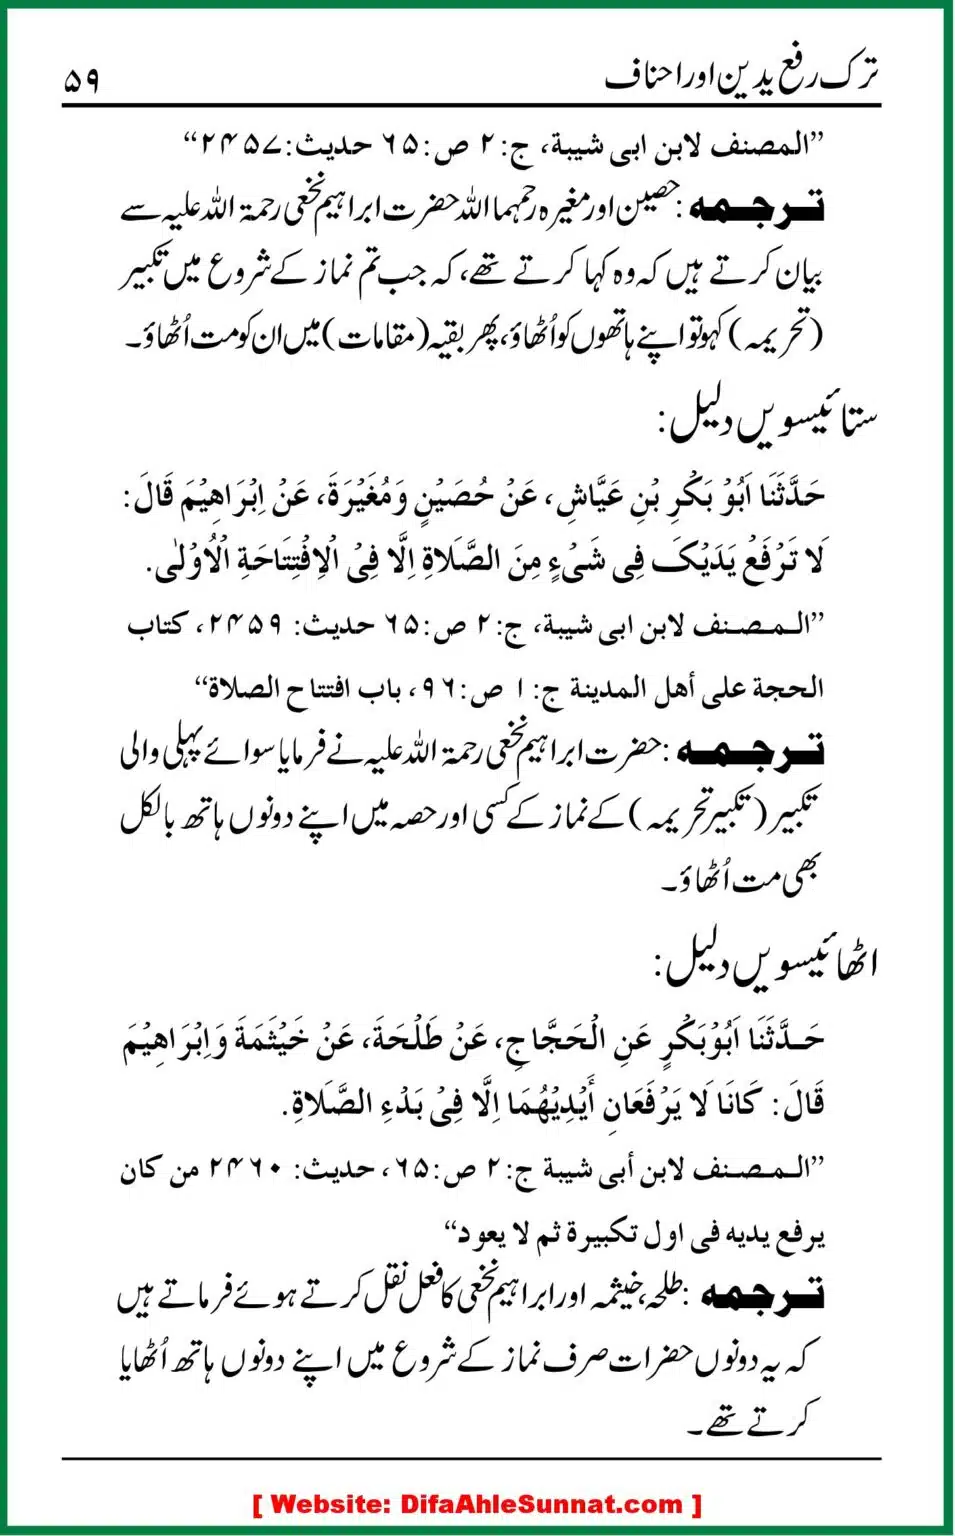 ترک رفع یدین اور احناف ۵۹
”المصنف لابن ابی شیبة، ج:۲ ص:۶۵ حدیث:۲۴۵۷“
ترجمه: حصین اور مغیرہ رحمہما اللہ حضرت ابراہیم نخعی رحمۃ اللہ علیہ سے
بیان کرتے ہیں کہ وہ کہا کرتے تھے، کہ جب تم نماز کے شروع میں تکبیر
(تحریمہ) کہو تو اپنے ہاتھوں کو اُٹھاؤ، پھر بقیہ (مقامات) میں ان کو مت اُٹھاؤ۔
ستائیسویں دلیل:
حَدَّثَنَا اَبُوْ بَكْرِ بْنِ عَيَّاشٍ، عَنْ حُصَيْنٍ وَمُغَيْرَةَ، عَنْ اِبْرَاهِيْمَ قَالَ:
لَا تَرْفَعْ يَدَيْکَ فِی شَیْءٍ مِنَ الصَّلَاةِ اِلَّا فِیْ الْاِفْتِتَاحَةِ الْاُوْلٰی.
”المصنف لابن ابی شیبة، ج:۲ ص:۶۵ حدیث: ۲۴۵۹، کتاب
الحجة علی أهل المدینة ج: ۱ ص:۹۶، باب افتتاح الصلاة“
ترجمه: حضرت ابراہیم نخعی رحمۃ اللہ علیہ نے فرمایا سوائے پہلی والی
تکبیر (تکبیر تحریمہ) کے نماز کے کسی اور حصہ میں اپنے دونوں ہاتھ بالکل
بھی مت اُٹھاؤ۔
اٹھائیسویں دلیل:
حَدَّثَنَا اَبُوْبَكْرٍ عَنِ الْحَجَّاجِ، عَنْ طَلْحَةَ، عَنْ خَيْثَمَةَ وَاِبْرَاهِيْمَ
قَالَ: كَانَا لَا يَرْفَعَانِ أَيْدِيْهُمَا اِلَّا فِیْ بَدْءِ الصَّلَاةِ.
”المصنف لابن أبی شیبة ج:۲ ص:۶۵، حدیث: ۲۴۶۰ من کان
یرفع یدیه فی اول تکبیرة ثم لا یعود“
ترجمه: طلحہ، خیثمہ اور ابراہیم نخعی کا فعل نقل کرتے ہوئے فرماتے ہیں
کہ یہ دونوں حضرات صرف نماز کے شروع میں اپنے دونوں ہاتھ اُٹھایا
کرتے تھے۔
[ Website: DifaAhleSunnat.com ]